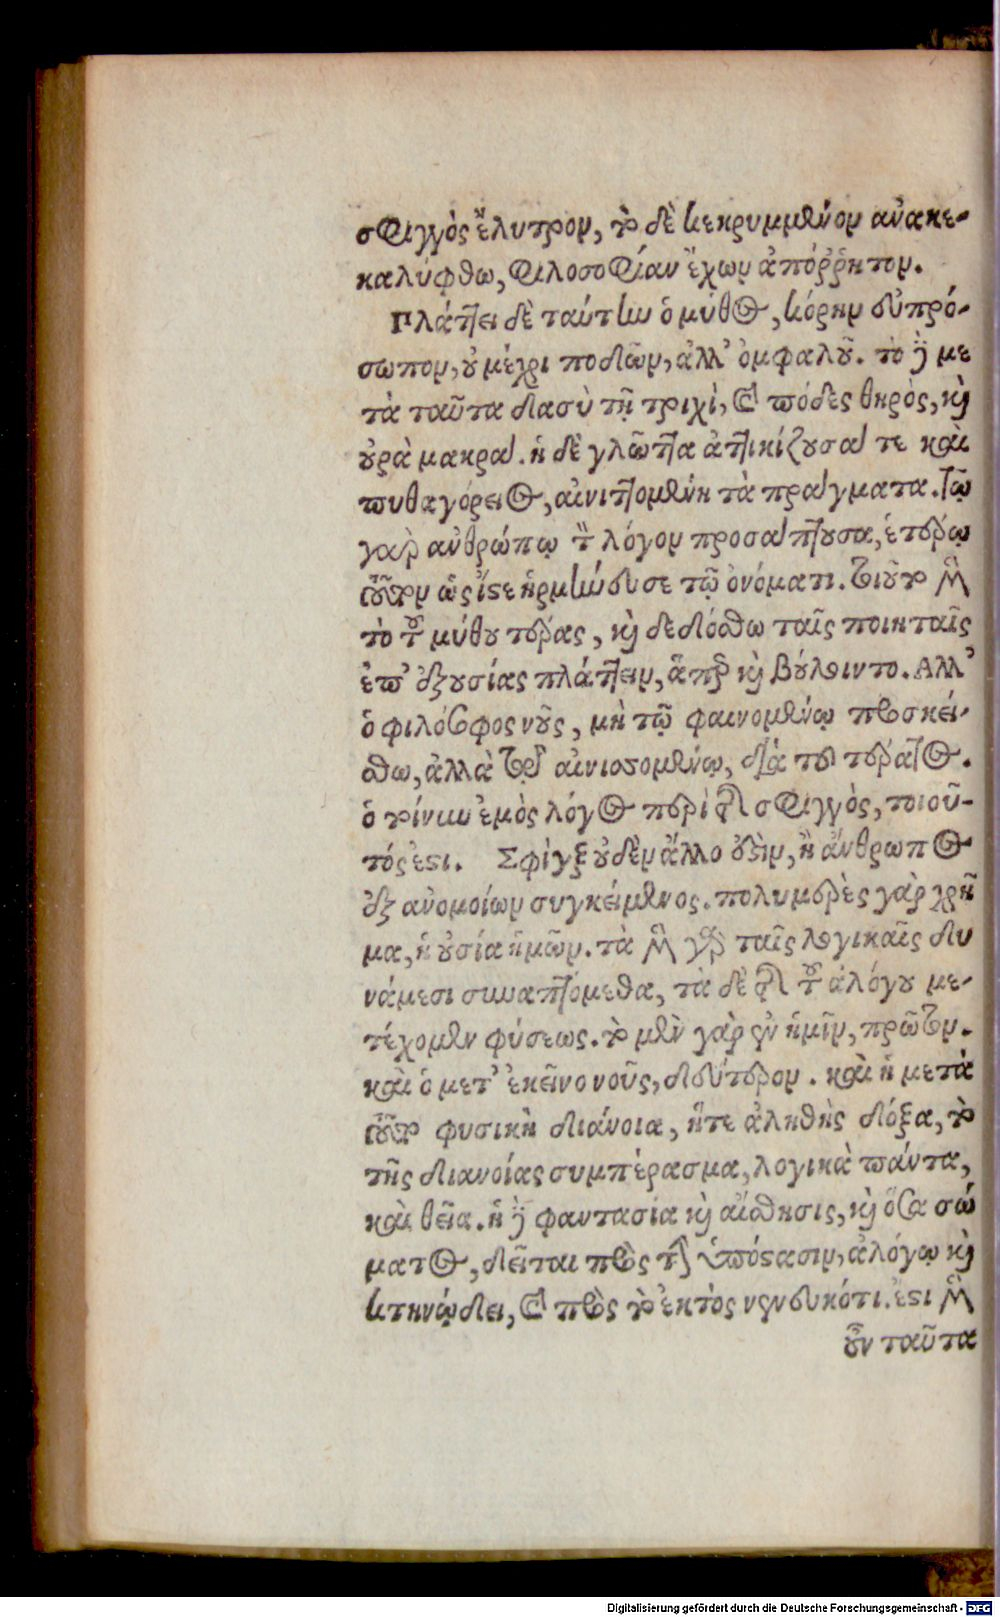 σφιγγὸς ἔλυτρον, τὸ δὲ κεκρυμμένον ἀνακε-
καλύφθω, φιλοσοφίαν ἔχων ἀπόῤῥητον.
Πλάττει δὲ ταύτην ὁ μύθος, κόρην εὐπρό-
σωπον, οὐ μέχρι ποδῶν, ἀλλ' ὀμφαλοῦ. τὸ δὲ με
τὰ ταῦτα δασὺ τῇ τριχὶ, καὶ πόδες θηρὸς, καὶ
οὐρὰ μακρὰ. ἡ δὲ γλῶττα ἀττικίζουσα τε καὶ
πυθαγόρειος, αἰνιττομένη τὰ πράγματα. τῷ
γὰρ ἀνθρώπῳ τὸν λόγον προσάπτουσα, ἑτέρῳ
τοῦτον ὡς ἴστε ἡρμήνευσε τῷ ὀνόματι. τοῦτο μὲν
τὸ τοῦ μύθου τέρας, καὶ δεδόσθω ταῖς ποιηταῖς
ἐπ' ἐξουσίας πλάττειν, ἅπερ καὶ βούλοιντο. Αλλ'
ὁ φιλόσοφος νοῦς, μὴ τῷ φαινομένῳ προσκεί-
σθω, ἀλλὰ τῷ αἰνισσομένῳ, διὰ τοῦ τέρατος.
ὁ τοίνυν ἐμὸς λόγος περὶ τῆς σφιγγὸς, τοιοῦ-
τός ἐστι. Σφὶγξ οὐδὲν ἄλλο ἐστὶν, ἢ ἄνθρωπος
ἐξ ἀνομοίων συγκείμενος. πολυμερὲς γὰρ χρῆ
μα, ἡ οὐσία ἡμῶν. τὰ μὲν γὰρ ταῖς λογικαῖς δυ
νάμεσι συναπτόμεθα, τὰ δὲ τῆς τοῦ ἀλόγου με-
τέχομεν φύσεως. τὸ μὲν γὰρ ἓν ἡμῖν, πρῶτον.
καὶ ὁ μετ' ἐκεῖνο νοῦς, δεύτερον. καὶ ἡ μετὰ
τοῦτο φυσικὴ διάνοια, ἥτε ἀληθὴς δόξα, τὸ
τῆς διανοίας συμπέρασμα, λογικὰ πάντα,
καὶ θεῖα. ἡ δὲ φαντασία καὶ αἴσθησις, καὶ ὅσα σώ
ματος, δεῖται πρὸς τὴν ὑπόστασιν, ἀλόγῳ καὶ
κτηνώδει, καὶ πρὸς τὸ ἐκτὸς νενευκότι. ἐστι μὲν
οὖν ταῦτα
Digitalisierung gefördert durch die Deutsche Forschungsgemeinschaft - DFG